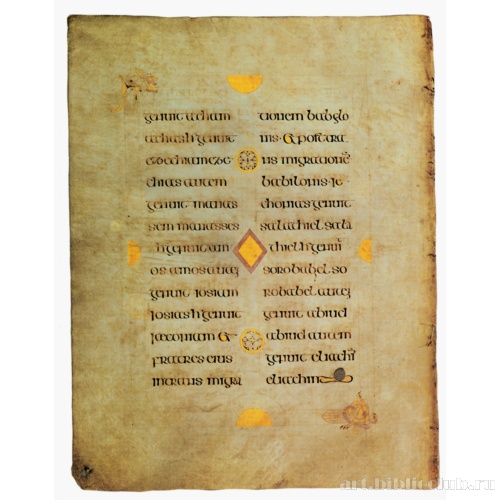 genuit acham
achas h genuit
ezechiam eze
chias autem
genuit manas
sem manasses
h genuit am
os amos aut
genuit iosiam
iosias h genuit
&
fratres eius
migra
tionem babylo
nis · & post tra
ns migrationē
babilonis ie
chonias genuit
salachiel sala
chiel h genuī
sorobabel so
robabel aut
genuit abiud
abiud autem
genuit eliachī
eliachim
art.biblioclub.ru